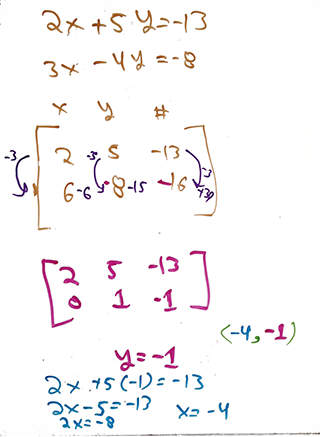 2x + 5y = -13
3x - 4y = -8
x y #
-3 2 -3 5 -13 -3
6 -6 -8 -15 -16 +39
2 5 -13
0 1 -1
(-4, -1)
y = -1
2x + 5(-1) = -13
2x - 5 = -13 x = -4
2x = -8